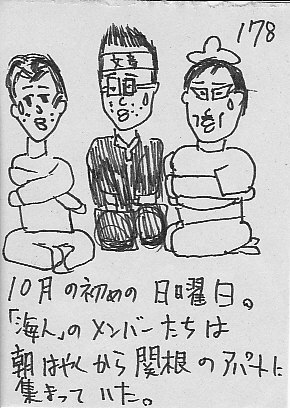 178
10月の初めの日曜日。
「海人」のメンバーたちは
朝はやくから関根のアパートに
集まっていた。